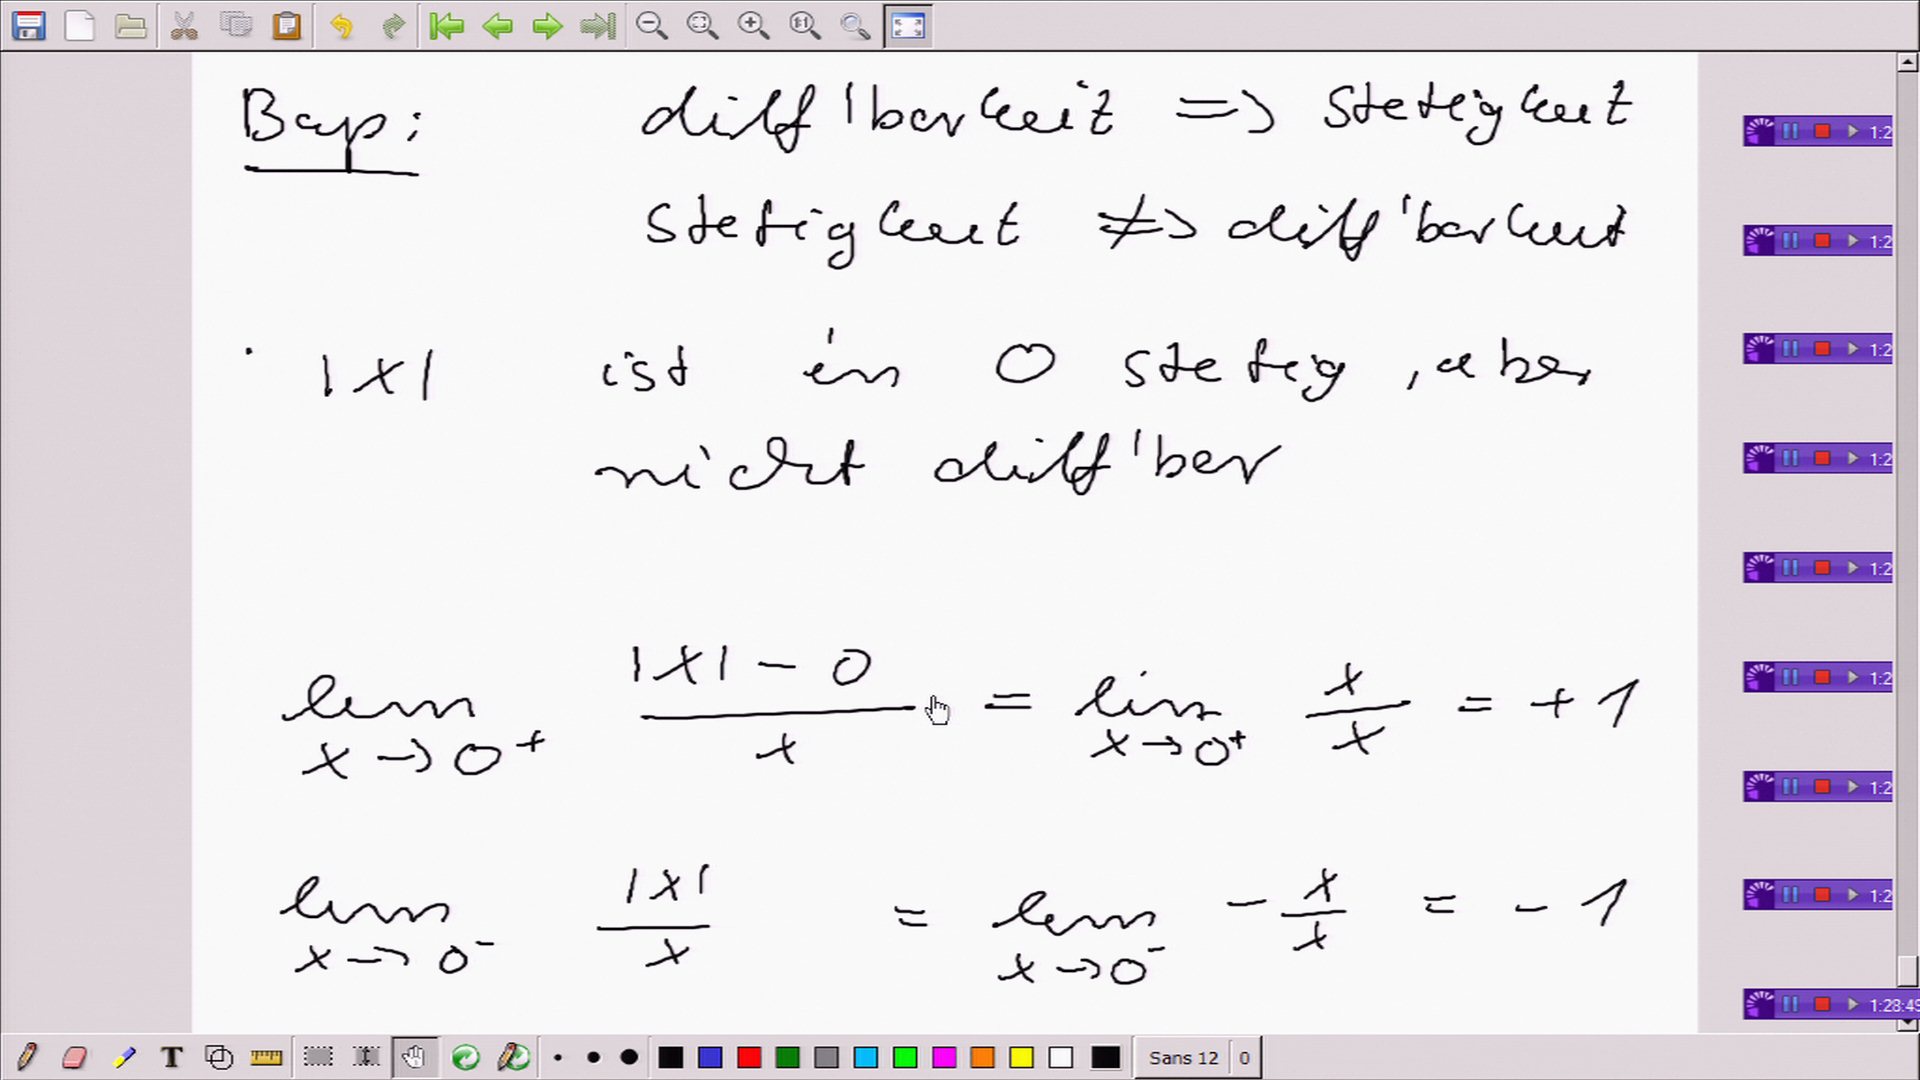 Bsp: diff'barkeit => Stetigkeit
Stetigkeit ≠> diff'barkeit
|x| ist in 0 stetig, aber
nicht diff'bar
lim x→0⁺ (|x| - 0)/x = lim x→0⁺ x/x = +1
lim x→0⁻ |x|/x = lim x→0⁻ -x/x = -1
1:2
1:2
1:2
1:2
1:2
1:2
1:2
1:2
1:28:49
Sans 12 0